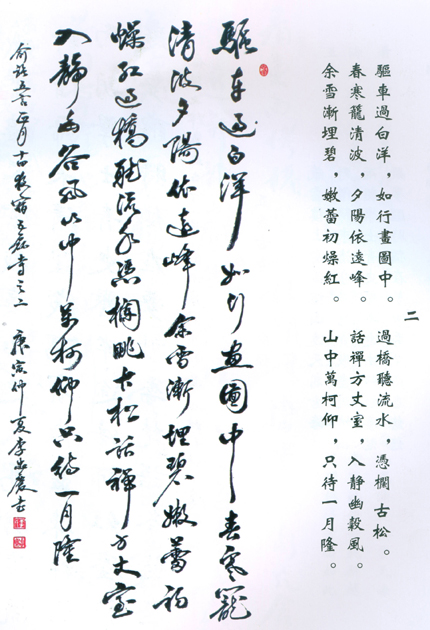 二
驅車過白洋，如行畫圖中。
春寒籠清波，夕陽依遠峰。
余雪漸埋碧，嫩蕾初燥紅。
過橋聽流水，憑欄 古松。
話禪方丈室，入靜幽穀風。
山中萬柯仰，只待一月隆。
驅車過白洋如行畫圖中春寒籠
清波夕陽依遠峰余雪漸埋碧嫩蕾初
燥紅過橋聽流水憑欄眺古松話禪方丈室
入靜幽谷風山中萬柯仰只待一月隆
五言正月十四夜宿五磊寺之二 庚寅仲夏李